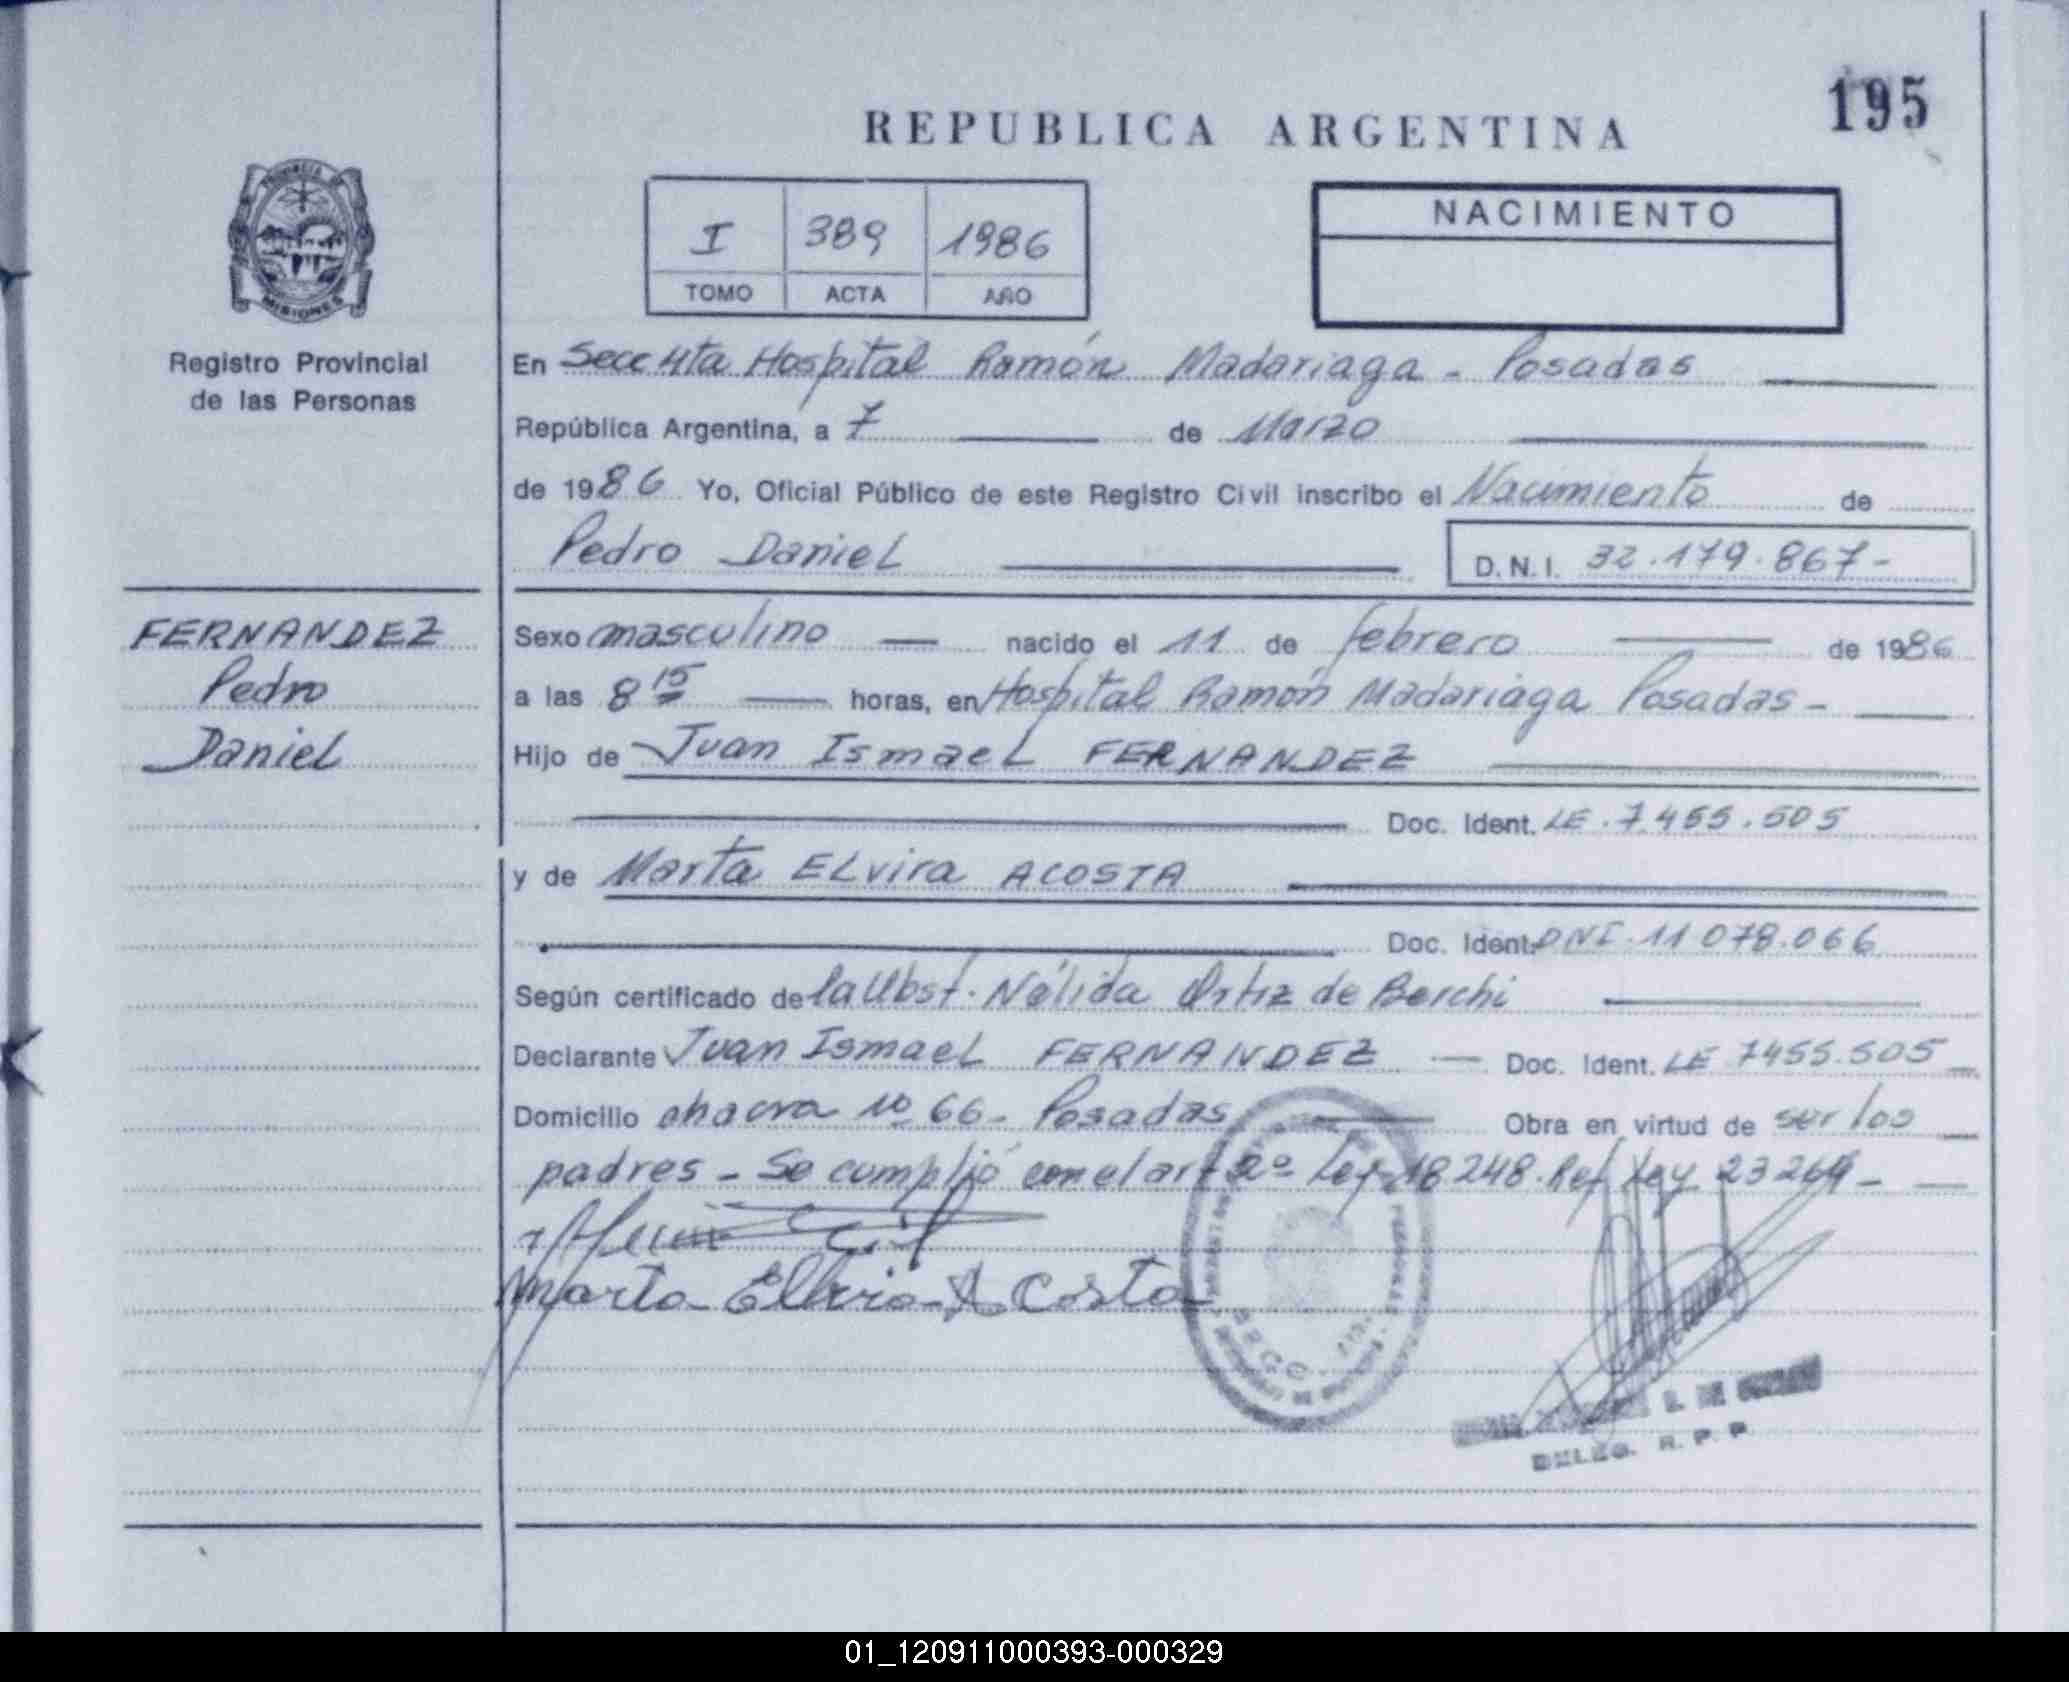 195
REPUBLICA ARGENTINA
PROVINCIA DE
MISIONES
I 389 1986
TOMO ACTA AÑO
NACIMIENTO
Registro Provincial
de las Personas
En Secc 4ta Hospital Ramón Madariaga - Posadas
República Argentina, a 7 de Marzo
de 1986 Yo, Oficial Público de este Registro Civil inscribo el Nacimiento de
Pedro Daniel D.N.I. 32.179.867-
FERNANDEZ
Pedro
Daniel
Sexo masculino nacido el 11 de febrero de 1986
a las 8 15 horas, en Hospital Ramón Madariaga Posadas -
Hijo de Juan Ismael FERNANDEZ
Doc. Ident. LE. 7.455.505
y de Marta Elvira ACOSTA
Doc. Ident. DNI. 11 078.066
Según certificado de la Obst. Nélida Ortiz de Berchi
Declarante Juan Ismael FERNANDEZ Doc. Ident. LE 7455.505
Domicilio chacra nº 66 - Posadas Obra en virtud de ser los
padres - Se cumplió con el art 2º Ley 18248. Ref Ley 23264 -
Marta Elvira Acosta
DELEG. R. P. P.
01_120911000393-000329